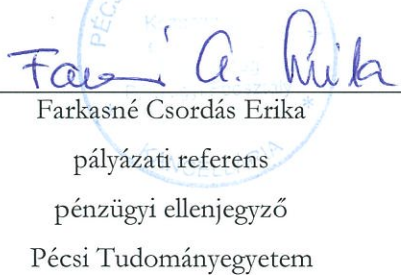 PÉCS
Farkasné Csordás Erika
pályázati referens
pénzügyi ellenjegyző
Pécsi Tudományegyetem
KANCELLÁRIA